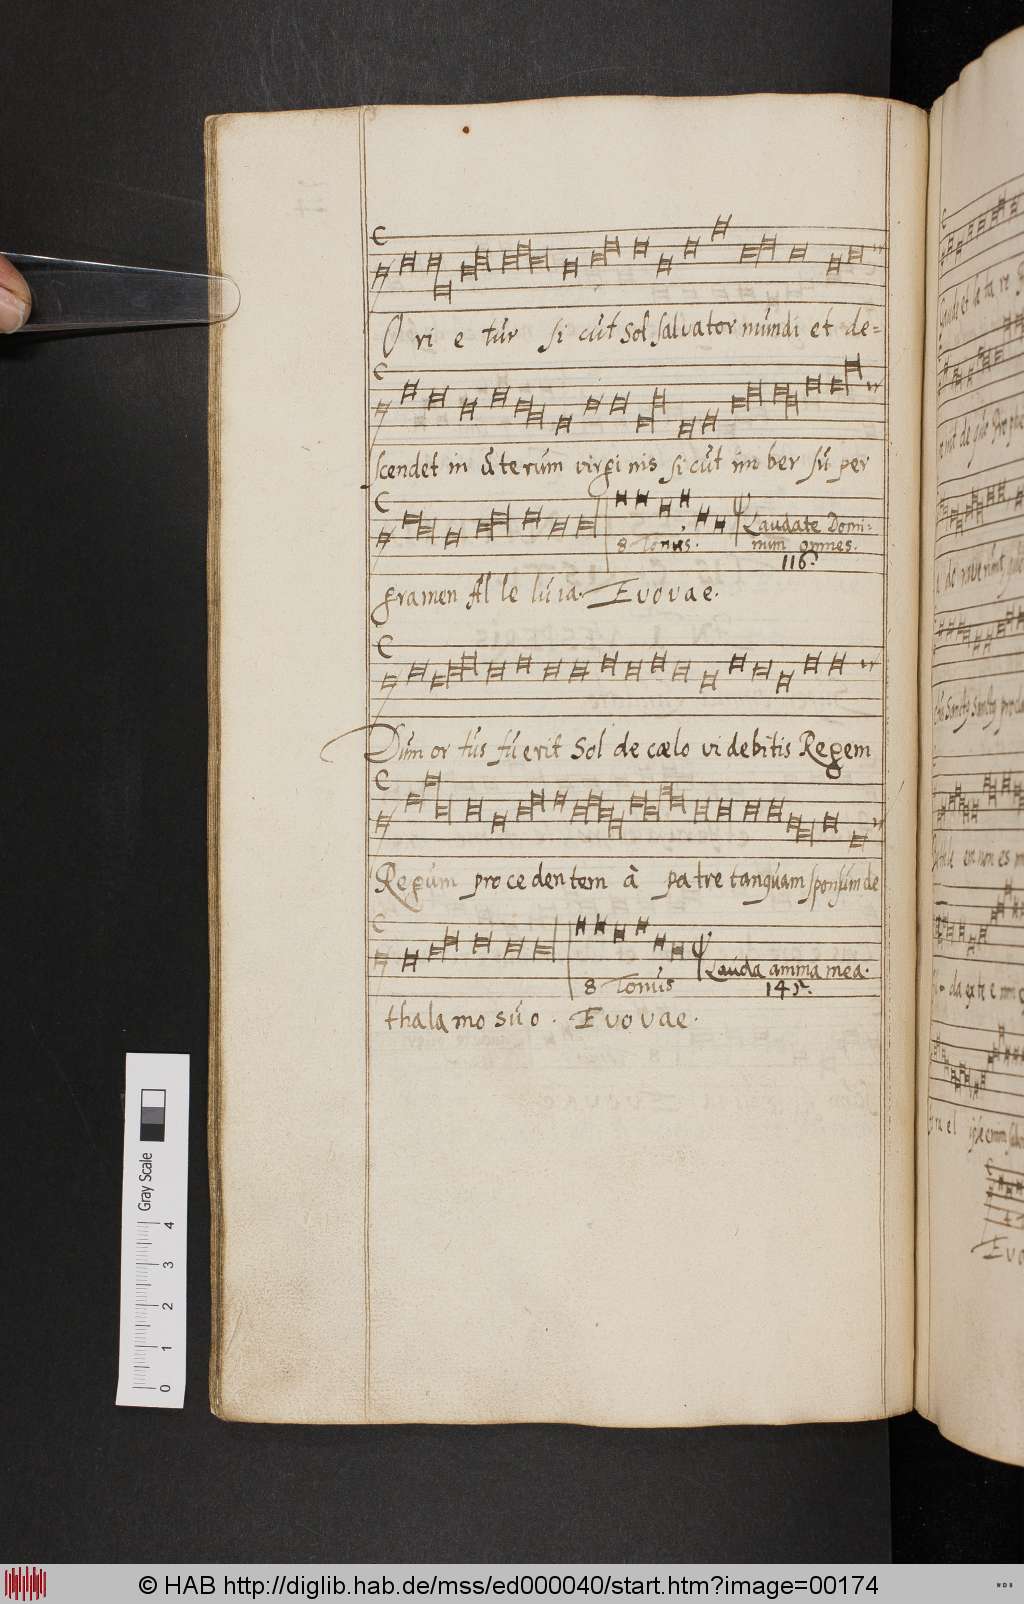 O ri e tur si cut Sol salvator mundi et de=
scendet in ute rum virgi nis si cut im ber su per
8 Tonus. Laudate Domi=
num omnes.
116.
gramen Al le lu ia. Evovae.
Dum or tus fu erit Sol de cælo vi debitis Regem
Regum pro ce den tem à patre tanquam sponsum de
8 Tonus Lauda anima mea.
145.
thala mo su o. Evovae.
Gaude et læ ta re
Evo
Gray Scale
0 1 2 3 4
© HAB http://diglib.hab.de/mss/ed000040/start.htm?image=00174